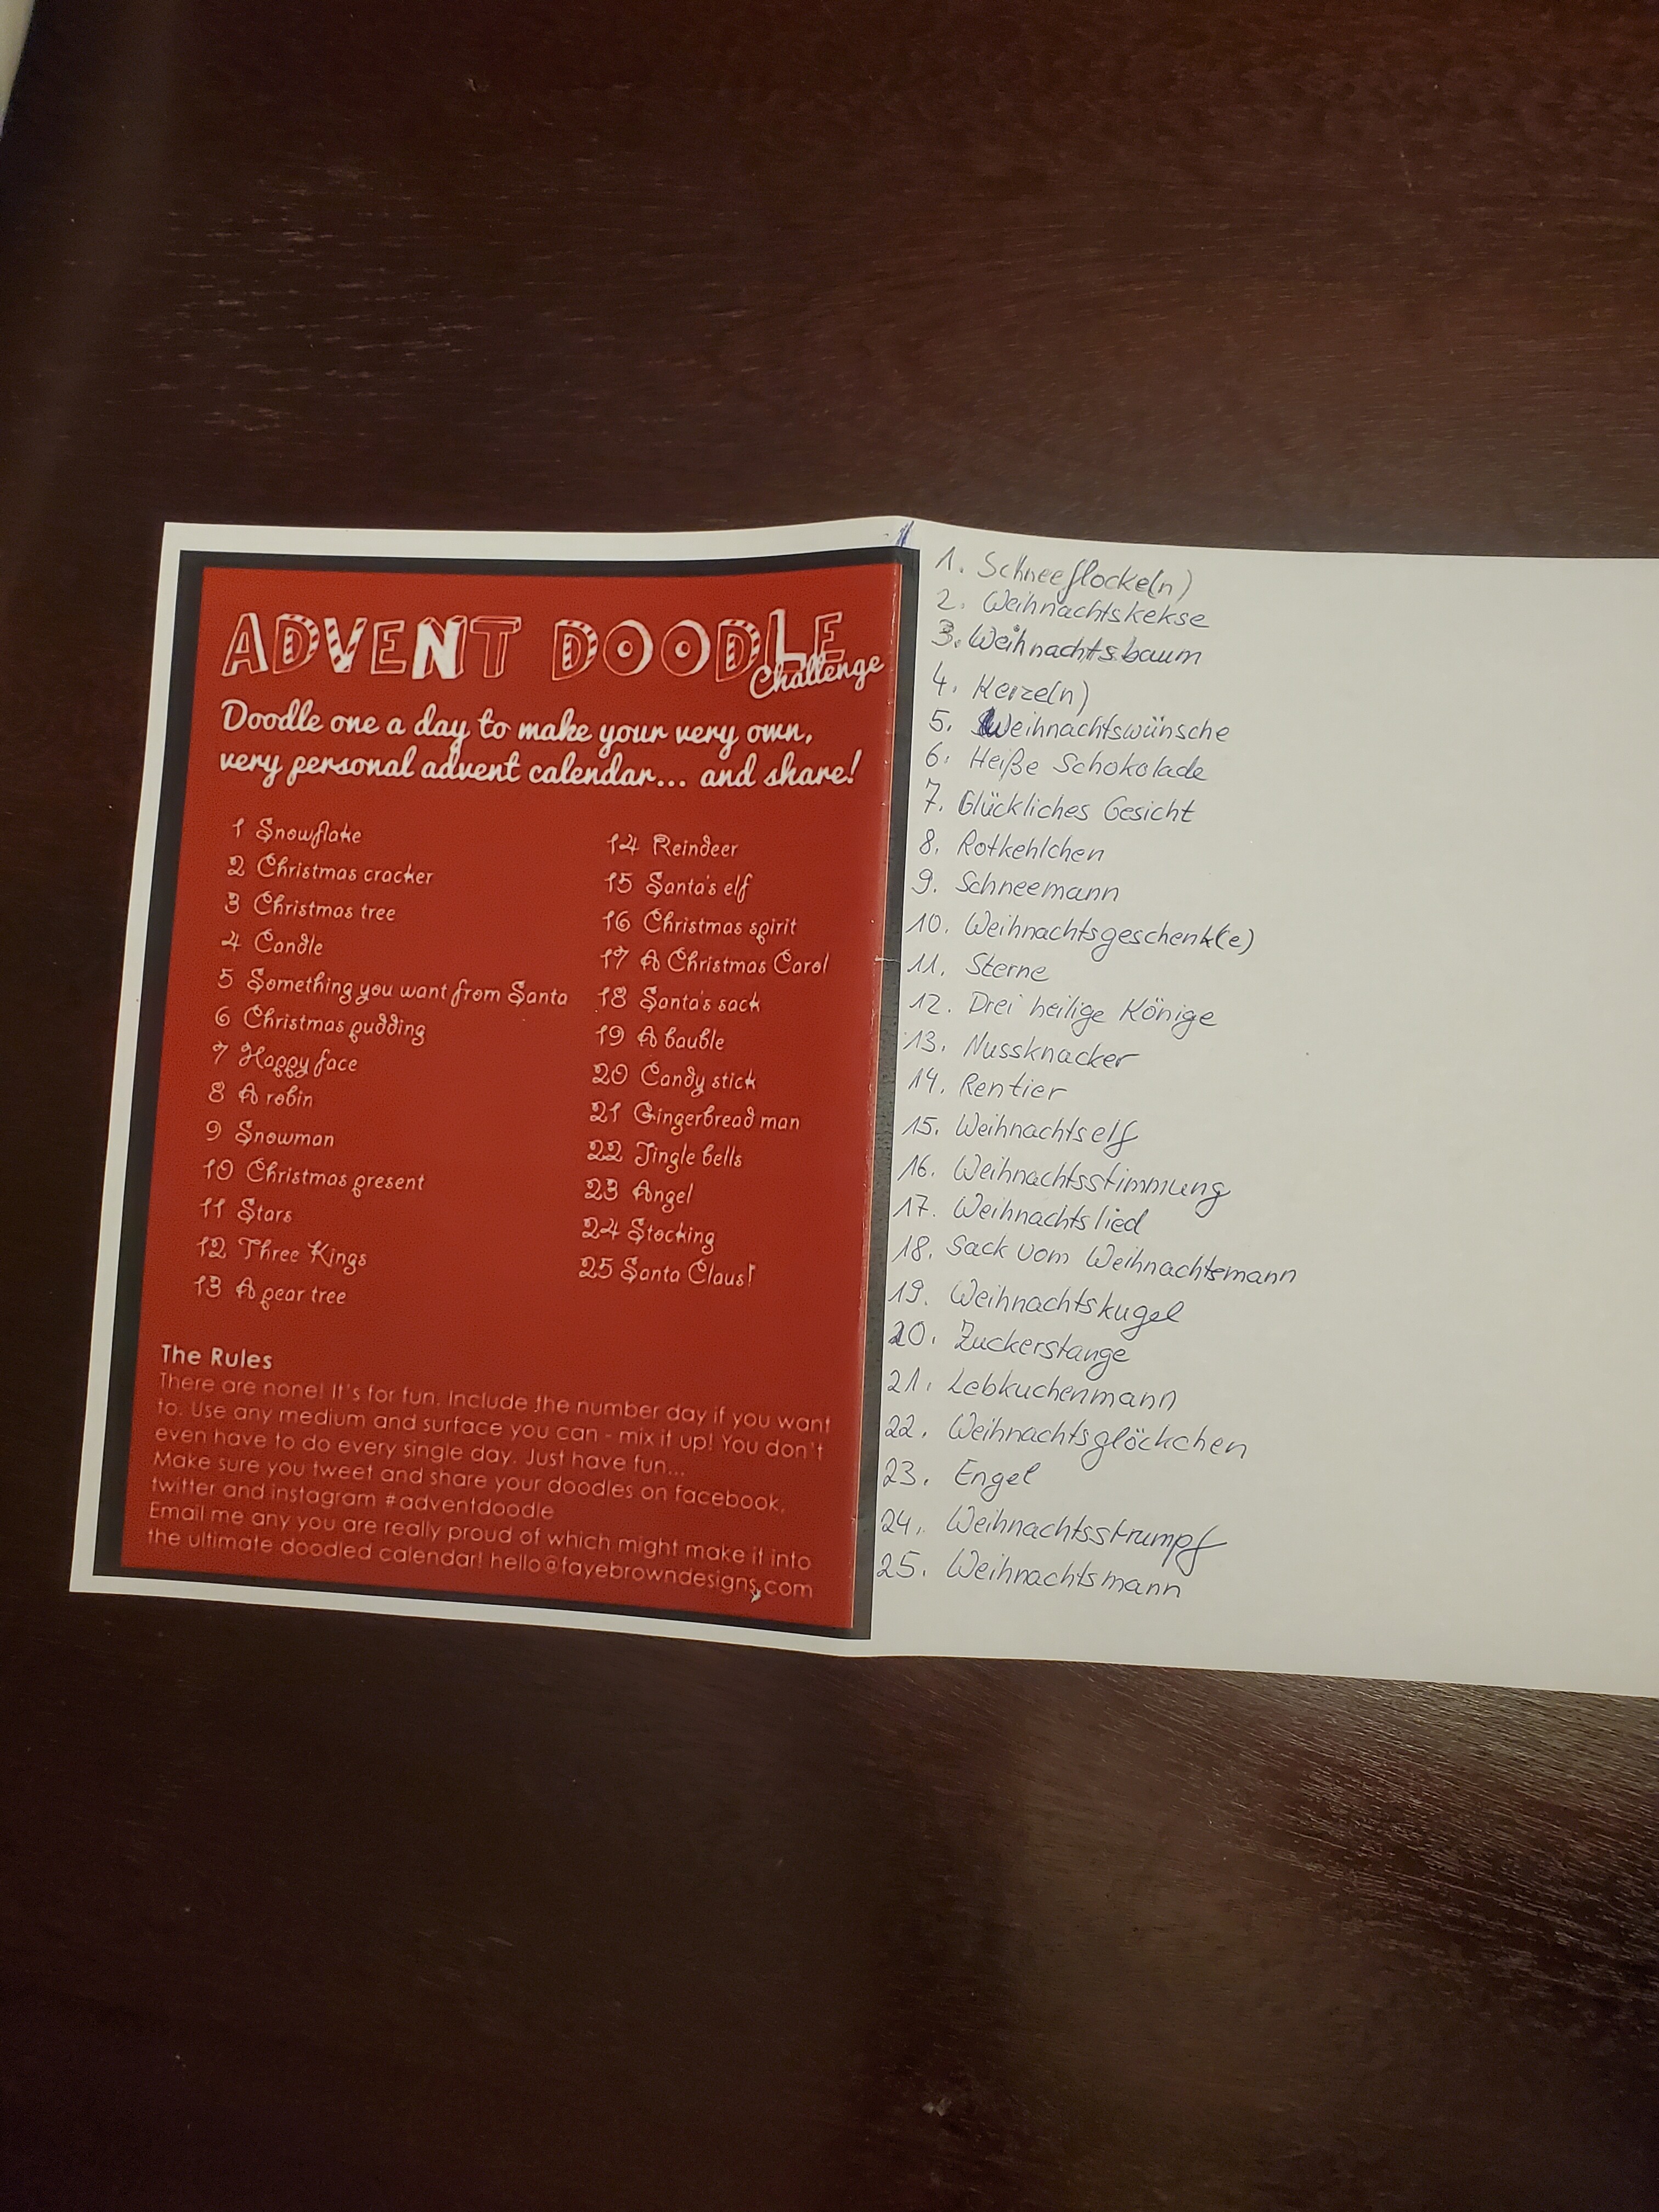 ADVENT DOODLE
Challenge
Doodle one a day to make your very own,
very personal advent calendar... and share!
1 Snowflake
2 Christmas cracker
3 Christmas tree
4 Candle
5 Something you want from Santa
6 Christmas pudding
7 Happy face
8 A robin
9 Snowman
10 Christmas present
11 Stars
12 Three Kings
13 A pear tree
14 Reindeer
15 Santa's elf
16 Christmas spirit
17 A Christmas Carol
18 Santa's sack
19 A bauble
20 Candy stick
21 Gingerbread man
22 Jingle bells
23 Angel
24 Stocking
25 Santa Claus!
The Rules
There are none! It's for fun. Include the number day if you want
to. Use any medium and surface you can - mix it up! You don't
even have to do every single day. Just have fun...
Make sure you tweet and share your doodles on facebook,
twitter and instagram #adventdoodle
Email me any you are really proud of which might make it into
the ultimate doodled calendar! hello@fayebrowndesigns.com
1. Schneeflocke(n)
2. Weihnachtskekse
3. Weihnachtsbaum
4. Kerze(n)
5. Weihnachtswünsche
6. Heiße Schokolade
7. Glückliches Gesicht
8. Rotkehlchen
9. Schneemann
10. Weihnachtsgeschenk(e)
11. Sterne
12. Drei heilige Könige
13. Nussknacker
14. Rentier
15. Weihnachtself
16. Weihnachtsstimmung
17. Weihnachtslied
18. Sack vom Weihnachtsmann
19. Weihnachtskugel
20. Zuckerstange
21. Lebkuchenmann
22. Weihnachtsglöckchen
23. Engel
24. Weihnachtsstrumpf
25. Weihnachtsmann